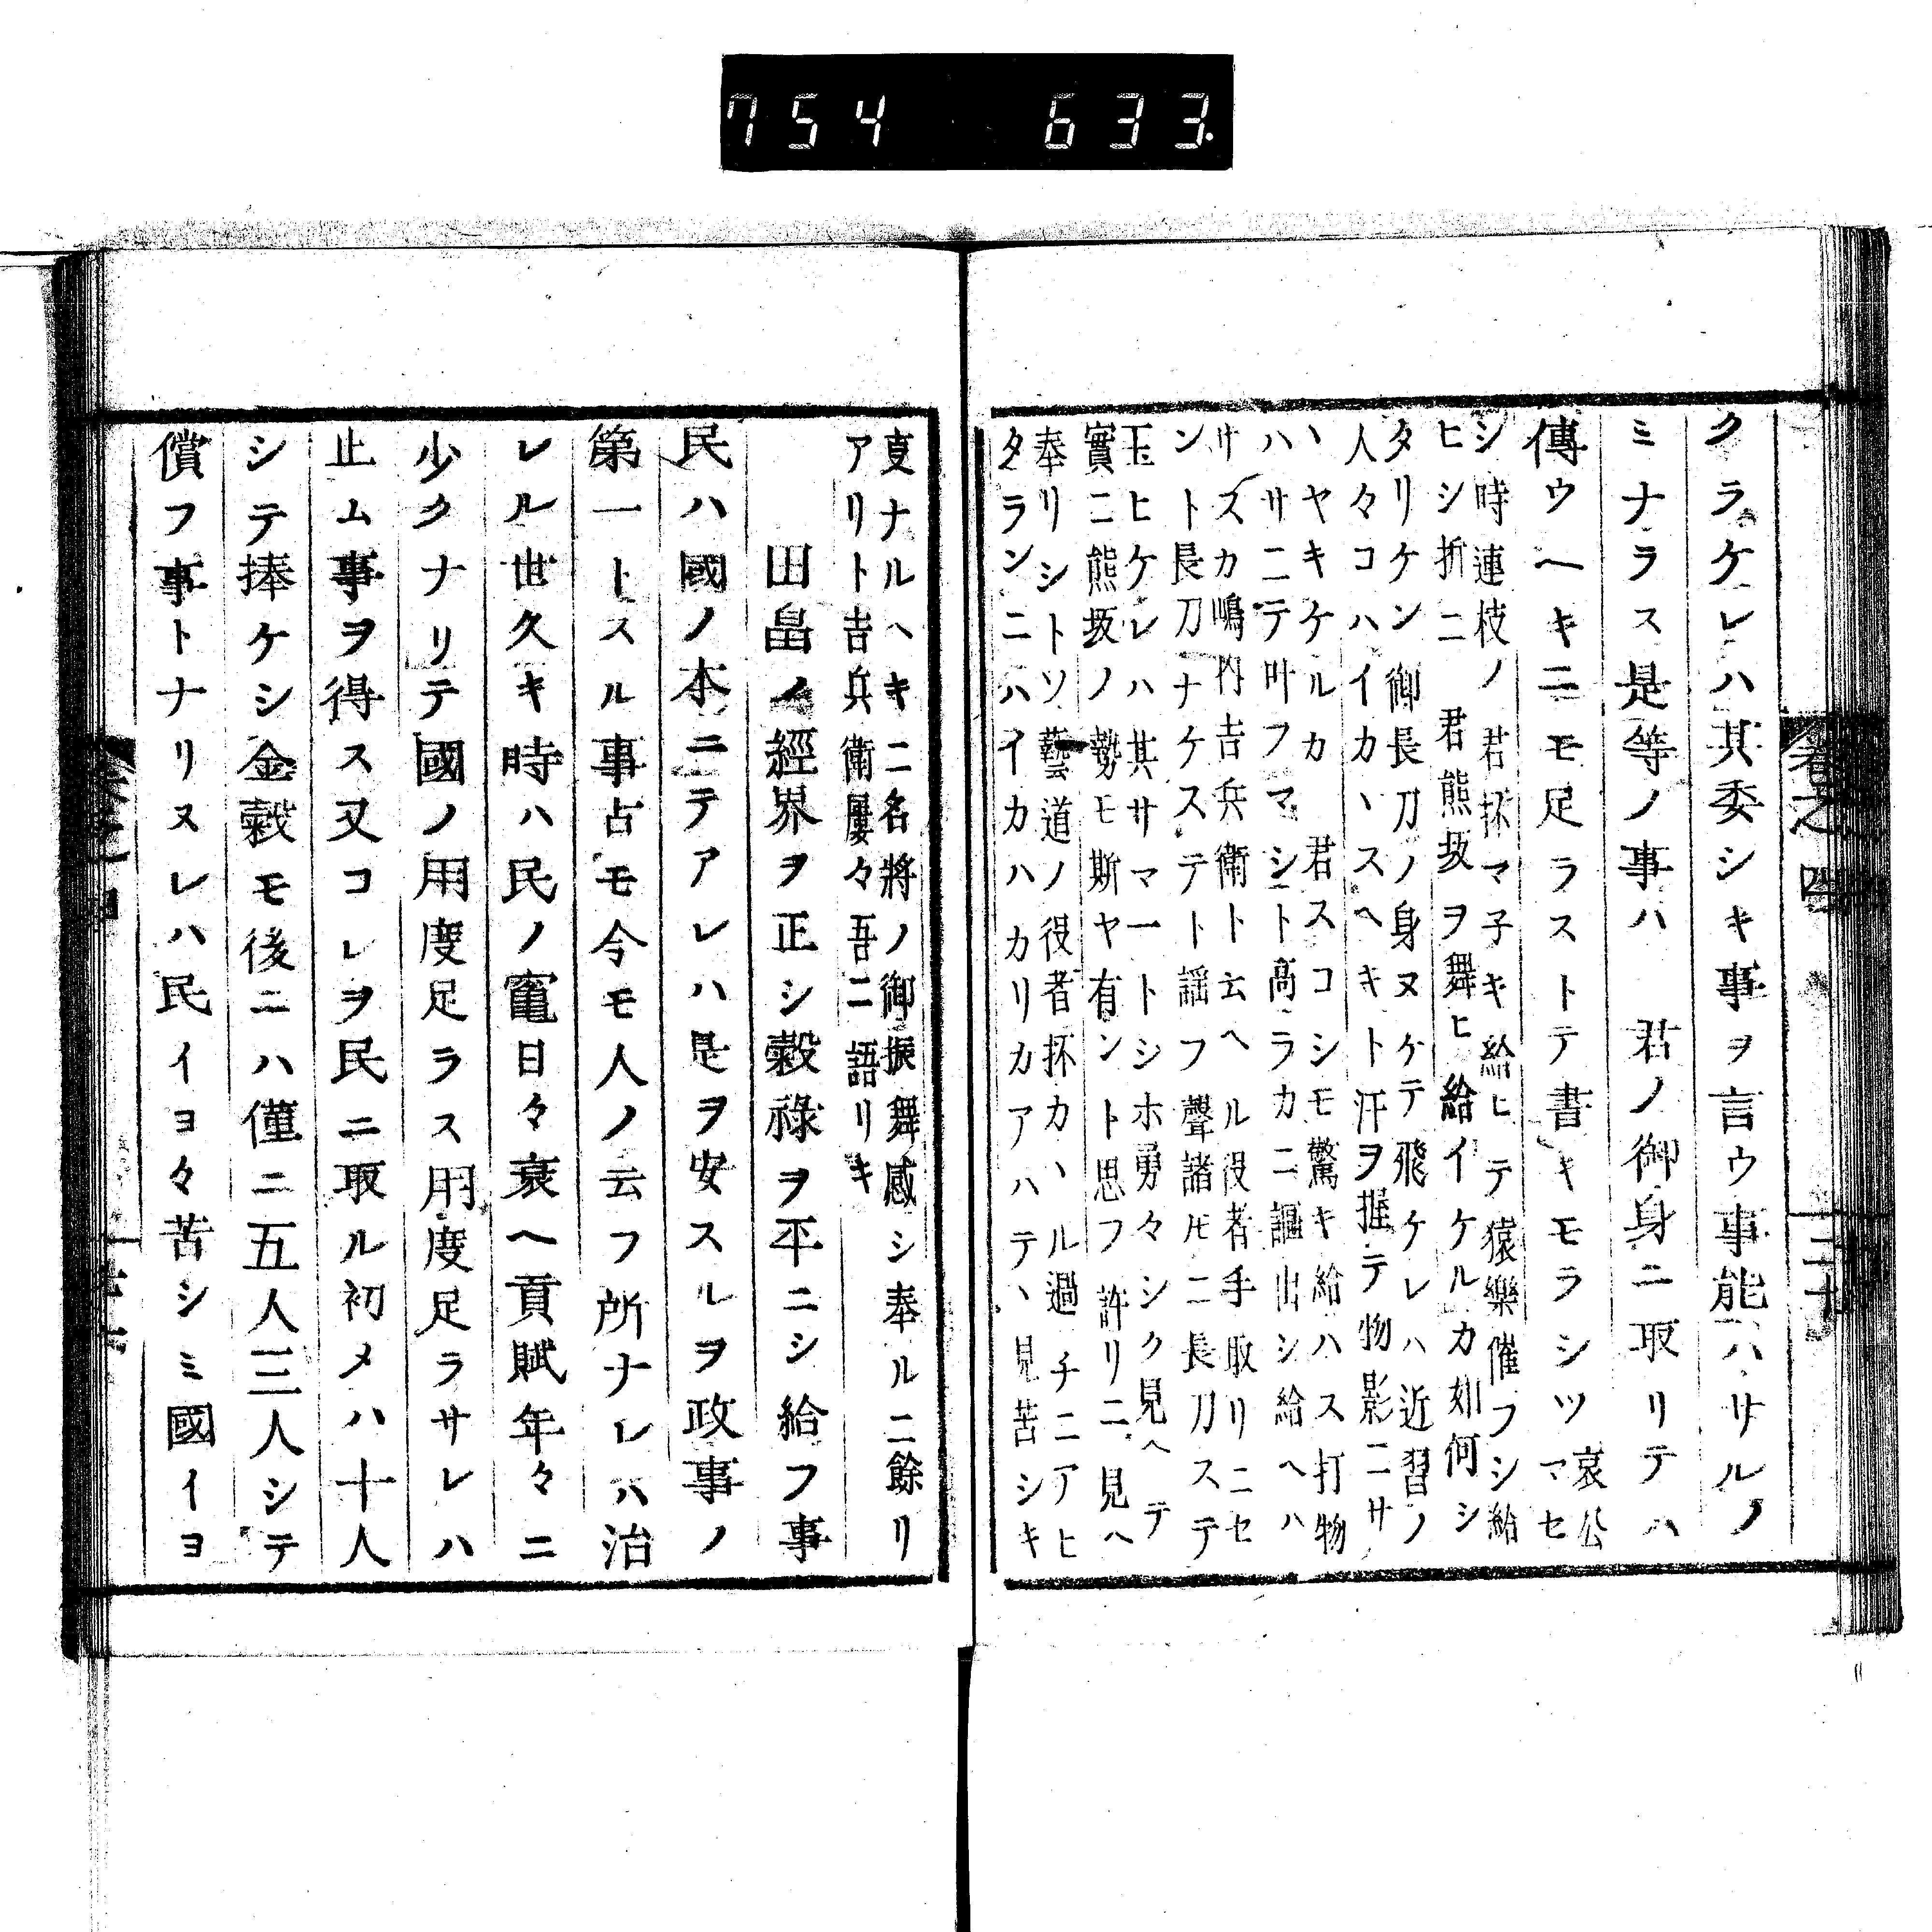 754 633.
卷之四 二十
クラケレハ其委シキ事ヲ言ウ事能ハサルノ
ミナラス是等ノ事ハ 君ノ御身ニ取リテハ
傳ウヘキニモ足ラストテ書キモラシツ
哀公
マセ
シ時連枝ノ君抔マ子キ給ヒテ猿樂催フシ給
ヒシ折ニ 君熊坂ヲ舞ヒ給イケルカ如何シ
タリケン御長刀ノ身ヌケテ飛ケレハ近習ノ
人々コハイカヽスヘキト汗ヲ握テ物影ニサ
ヽヤキケルカ 君スコシモ驚キ給ハス打物
ハサニテ叶フマシト高ラカニ謳出シ給ヘハ
サスカ嶋内吉兵衛ト云ヘル役者手取リニセ
ント長刀ナケステト謡フ聲諸尼ニ長刀ステ
玉ヒケレハ其サマ一トシホ勇々シク見ヘテ
實ニ熊坂ノ勢モ斯ヤ有ント思フ許リニ見ヘ
奉リシトソ藝道ノ役者抔カヽル過チニアヒ
タランニハイカハカリカアハテヽ見苦シキ
叓ナルヘキニ名將ノ御振舞感シ奉ルニ餘リ
アリト吉兵衛屢々吾ニ語リキ
田畠ノ經界ヲ正シ穀祿ヲ平ニシ給フ事
民ハ國ノ本ニテアレハ是ヲ安スルヲ政事ノ
第一トスル事占モ今モ人ノ云フ所ナレハ治
レル世久キ時ハ民ノ竃日々衰ヘ貢賦年々ニ
少クナリテ國ノ用度足ラス用度足ラサレハ
止ム事ヲ得ス又コレヲ民ニ取ル初メハ十人
シテ捧ケシ金穀モ後ニハ僅ニ五人三人シテ
償フ事トナリヌレハ民イヨ々苦シミ國イヨ